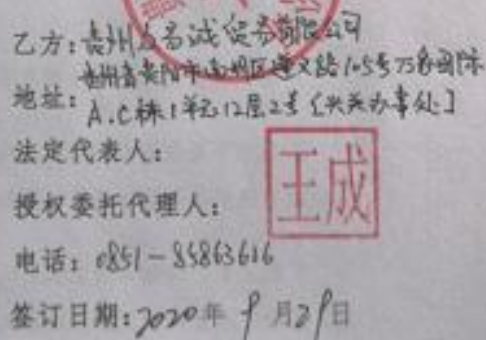 乙方:贵州众名诚贸易有限公司
贵州省贵阳市南明区遵义路105号75会国际
地址:A.C栋1单元12层2号[兴关办事处]
法定代表人:
授权委托代理人:
王成
电话:0851-85863616
签订日期:2020年9月29日